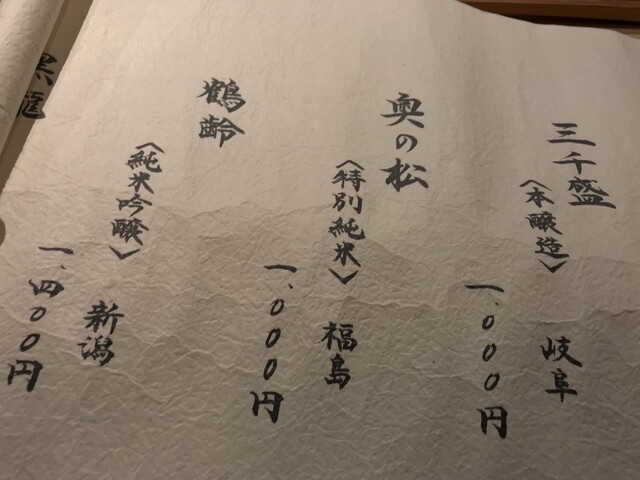 三千盛
〈本醸造〉
岐阜
一、〇〇〇円
奥の松
〈特別純米〉
福島
一、〇〇〇円
鶴齢
〈純米吟醸〉
新潟
一、四〇〇円
黒龍